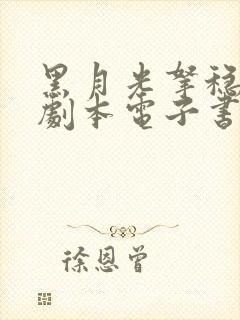 黑月光拏稳
劇本電子書
徐恩曾